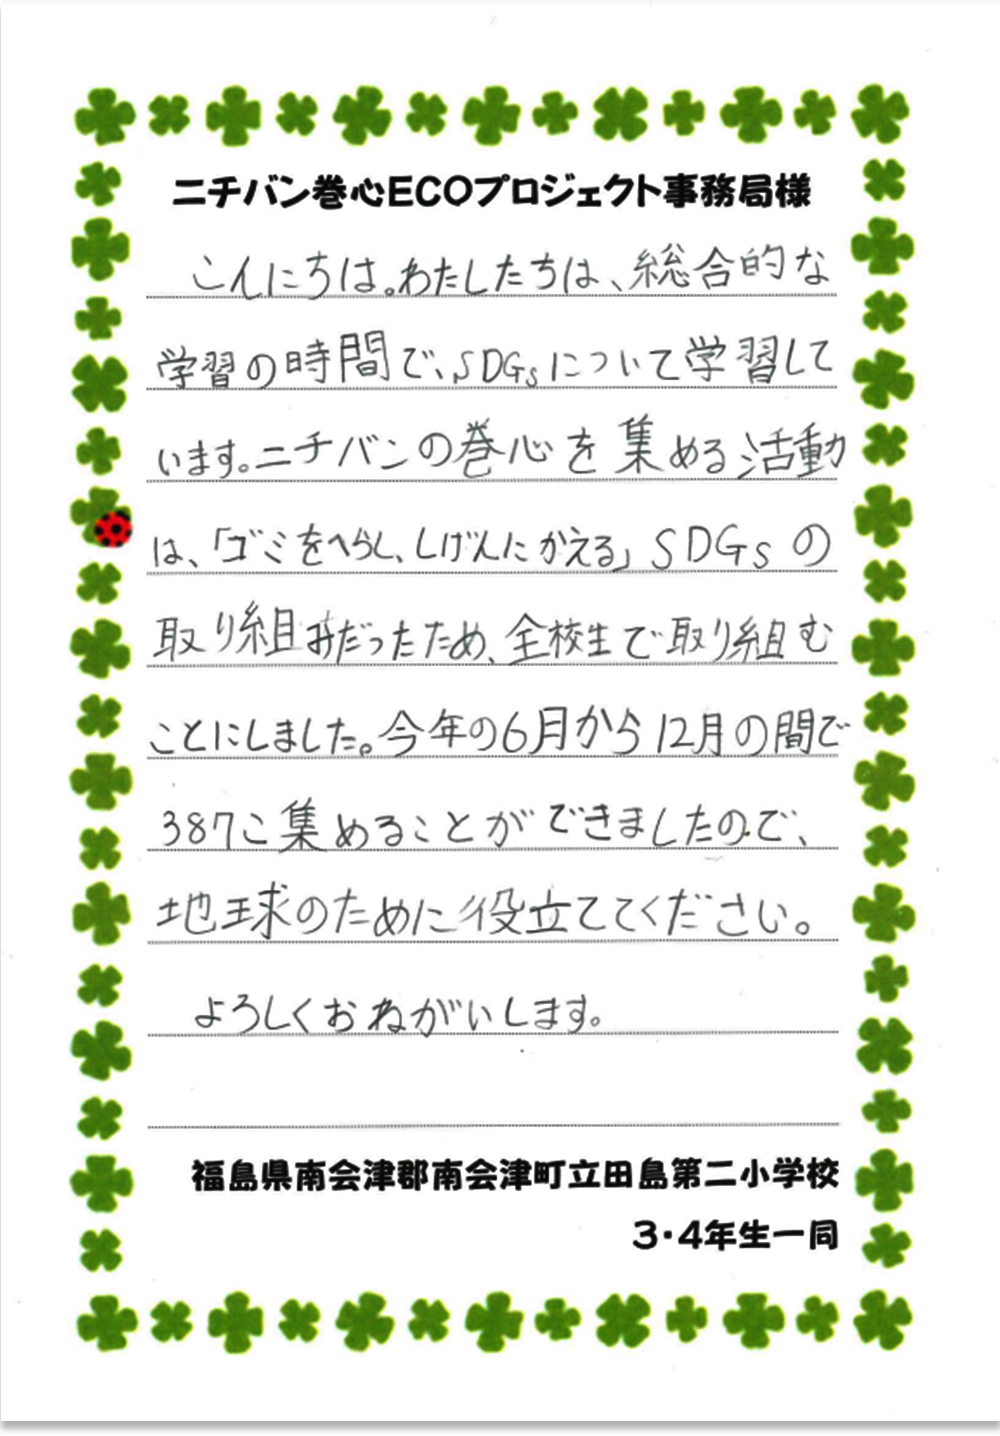 ニチバン巻心ECOプロジェクト事務局様
こんにちは。わたしたちは、総合的な
学習の時間で、SDGsについて学習して
います。ニチバンの巻心を集める活動
は、「ゴミをへらし、しげんにかえる」SDGsの
取り組みだったため、全校生で取り組む
ことにしました。今年の6月から12月の間で
387こ集めることができましたので、
地球のために役立ててください。
よろしくおねがいします。
福島県南会津郡南会津町立田島第二小学校
3・4年生一同